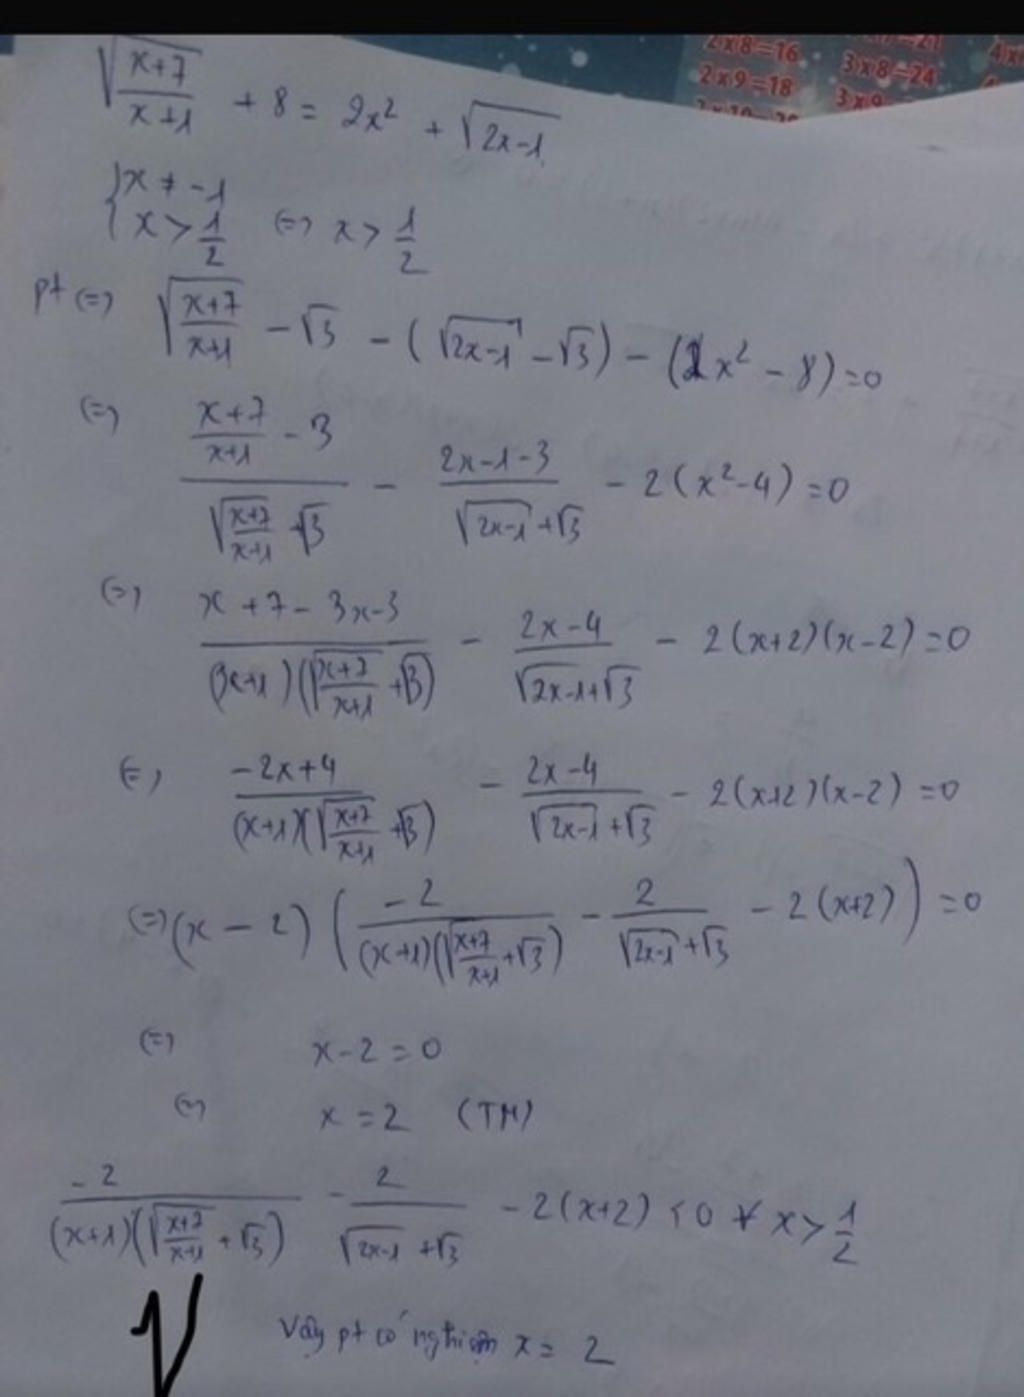 2x8=16
2x9=18
3x8=24
√((x+7)/(x+1)) + 8 = 2x² + √(2x-1)
{ x ≠ -1
{ x > 1/2 (=) x > 1/2
pt (=) √((x+7)/(x+1)) - √3 - (√(2x-1) - √3) - (2x² - 8) = 0
(=) ((x+7)/(x+1) - 3)/(√((x+7)/(x+1)) + √3) - (2x-1-3)/(√(2x-1) + √3) - 2(x²-4) = 0
(=) (x+7-3x-3)/((x+1)(√((x+7)/(x+1)) + √3)) - (2x-4)/(√(2x-1) + √3) - 2(x+2)(x-2) = 0
(=) (-2x+4)/((x+1)(√((x+7)/(x+1)) + √3)) - (2x-4)/(√(2x-1) + √3) - 2(x+2)(x-2) = 0
(=) (x-2)(-2/((x+1)(√((x+7)/(x+1)) + √3)) - 2/(√(2x-1) + √3) - 2(x+2)) = 0
(=) x-2 = 0
(=) x = 2 (TM)
-2/((x+1)(√((x+7)/(x+1)) + √3)) - 2/(√(2x-1) + √3) - 2(x+2) < 0 ∀ x > 1/2
Vậy pt có nghiệm x = 2